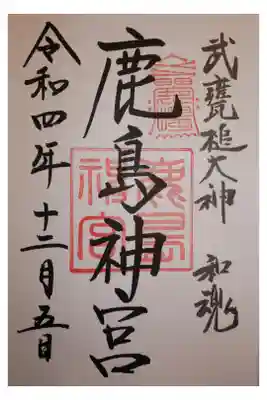 武甕槌大神 和魂
鹿島神宮
鹿島
神宮
令和四年十二月五日